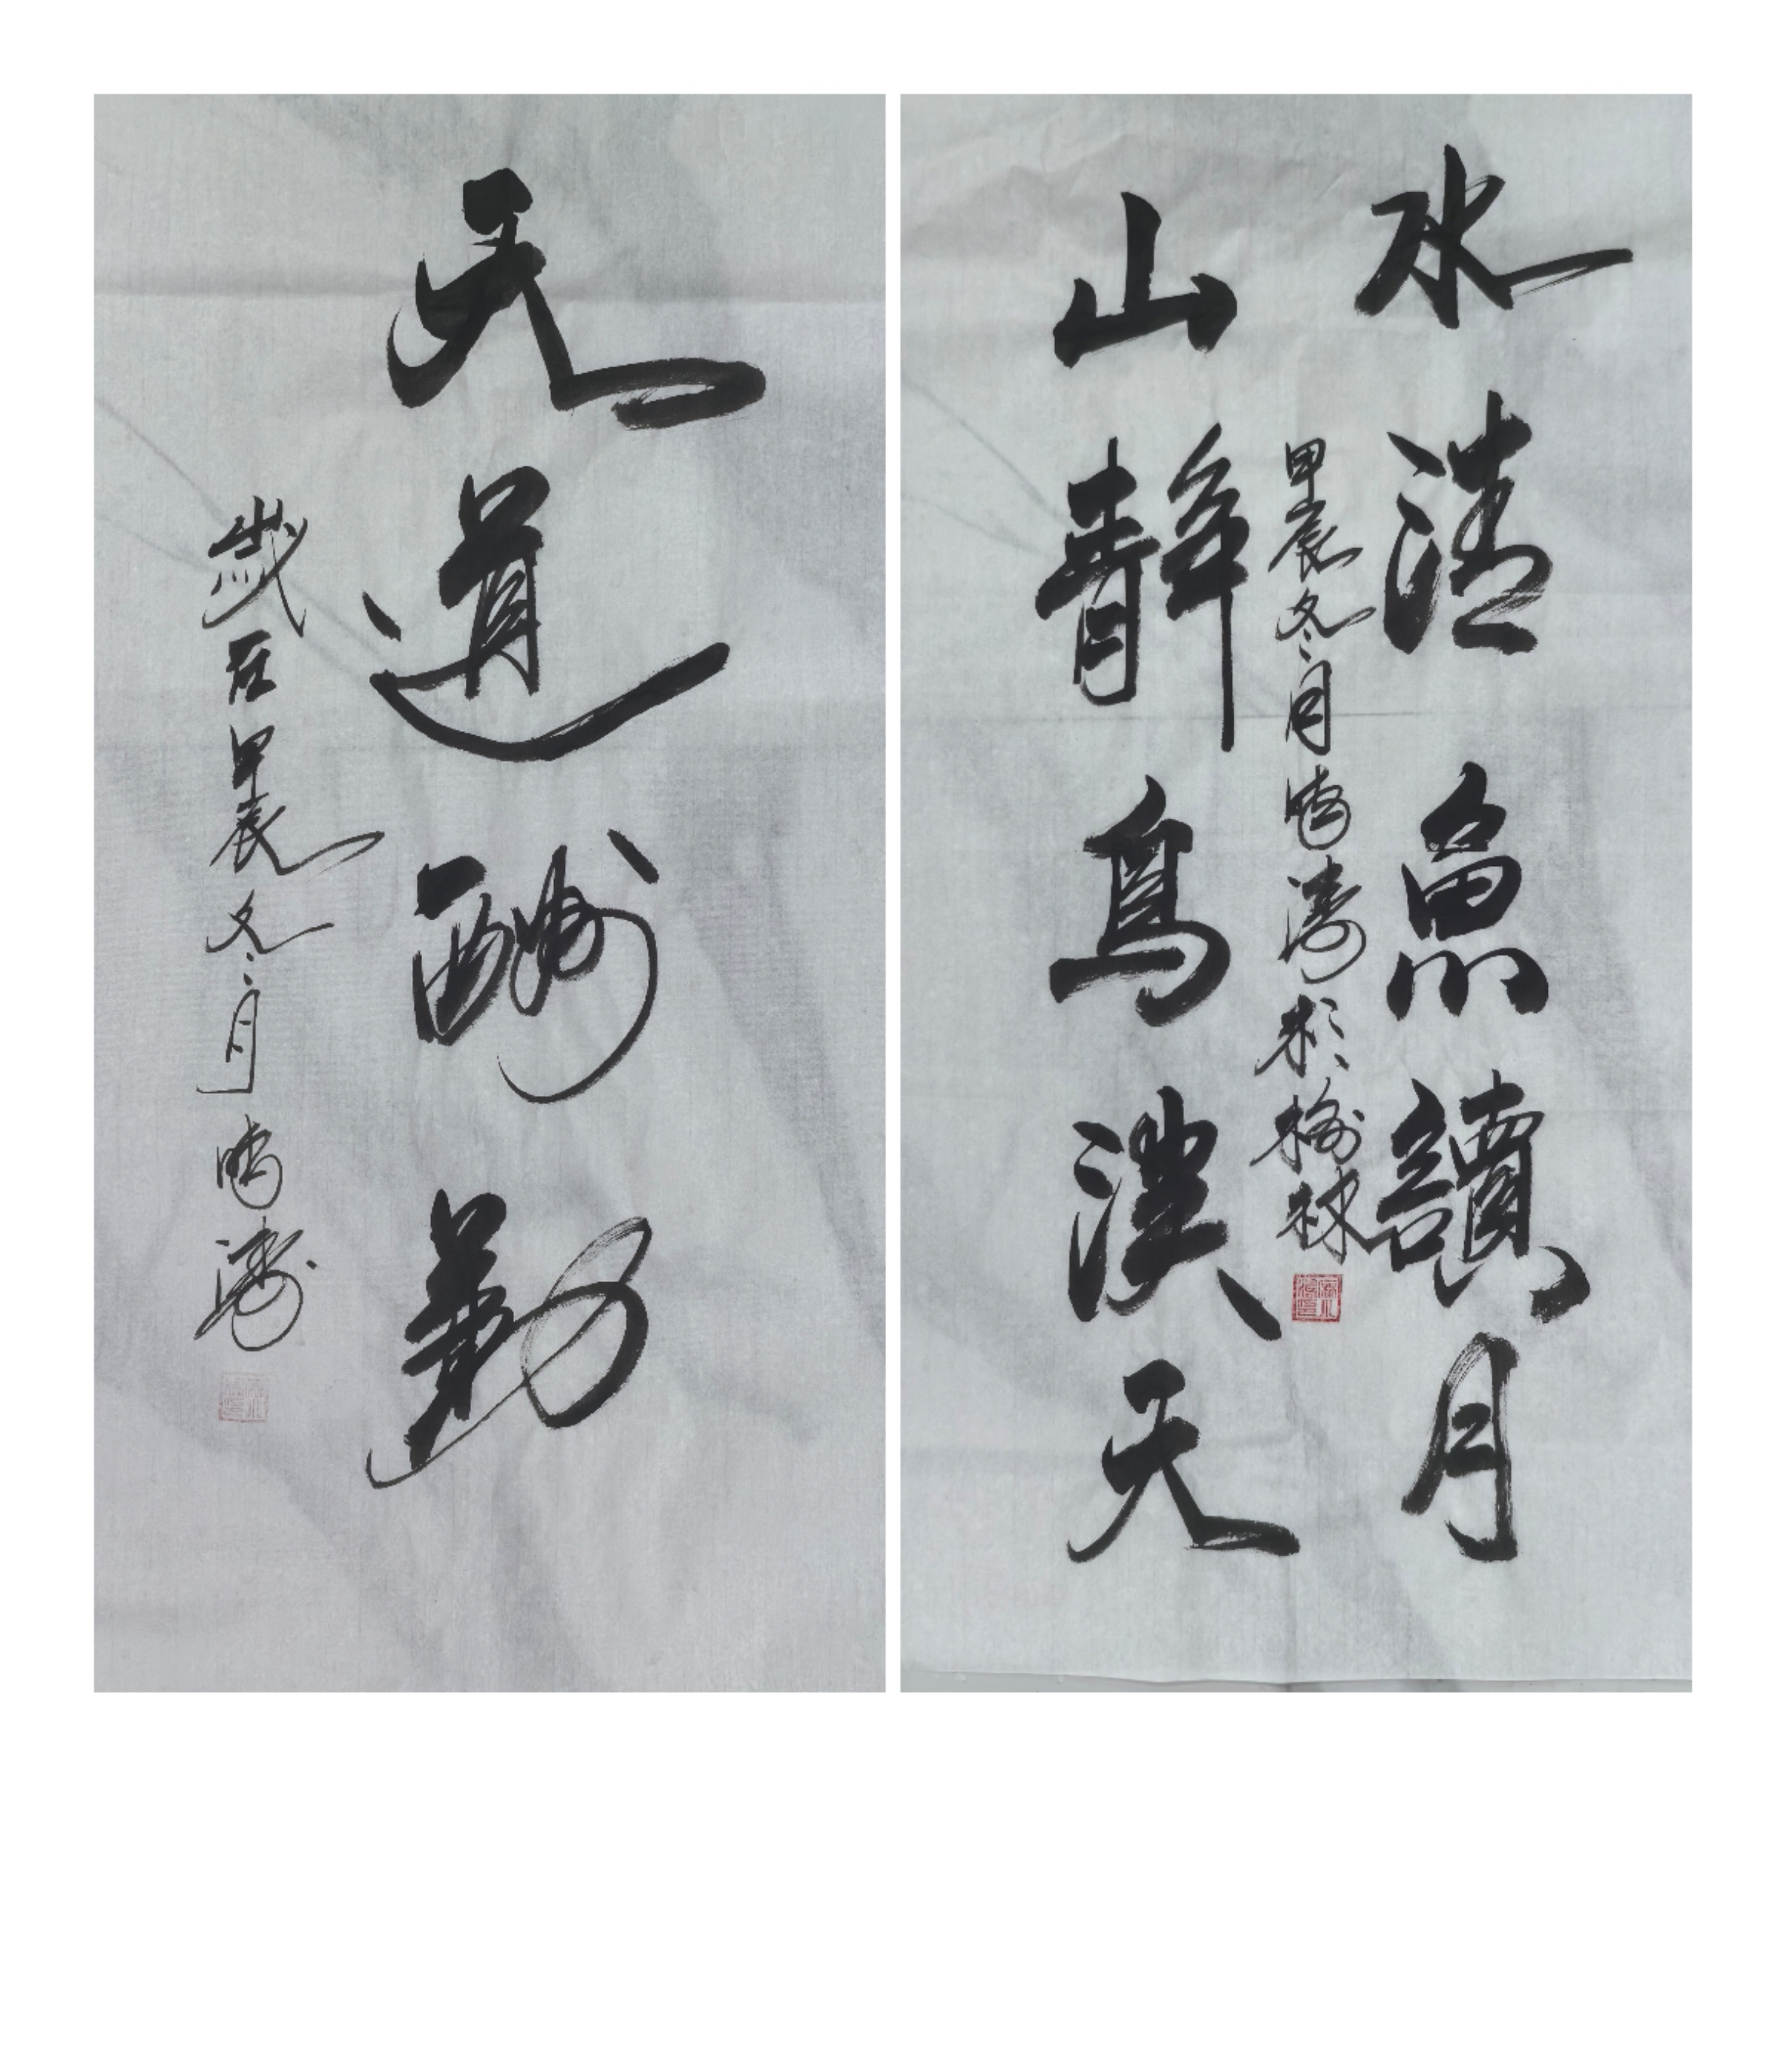 天道酬勤
歲在甲辰冬月鵬濤
水清魚讀月
山靜鳥談天
甲辰冬月鵬濤於榆林